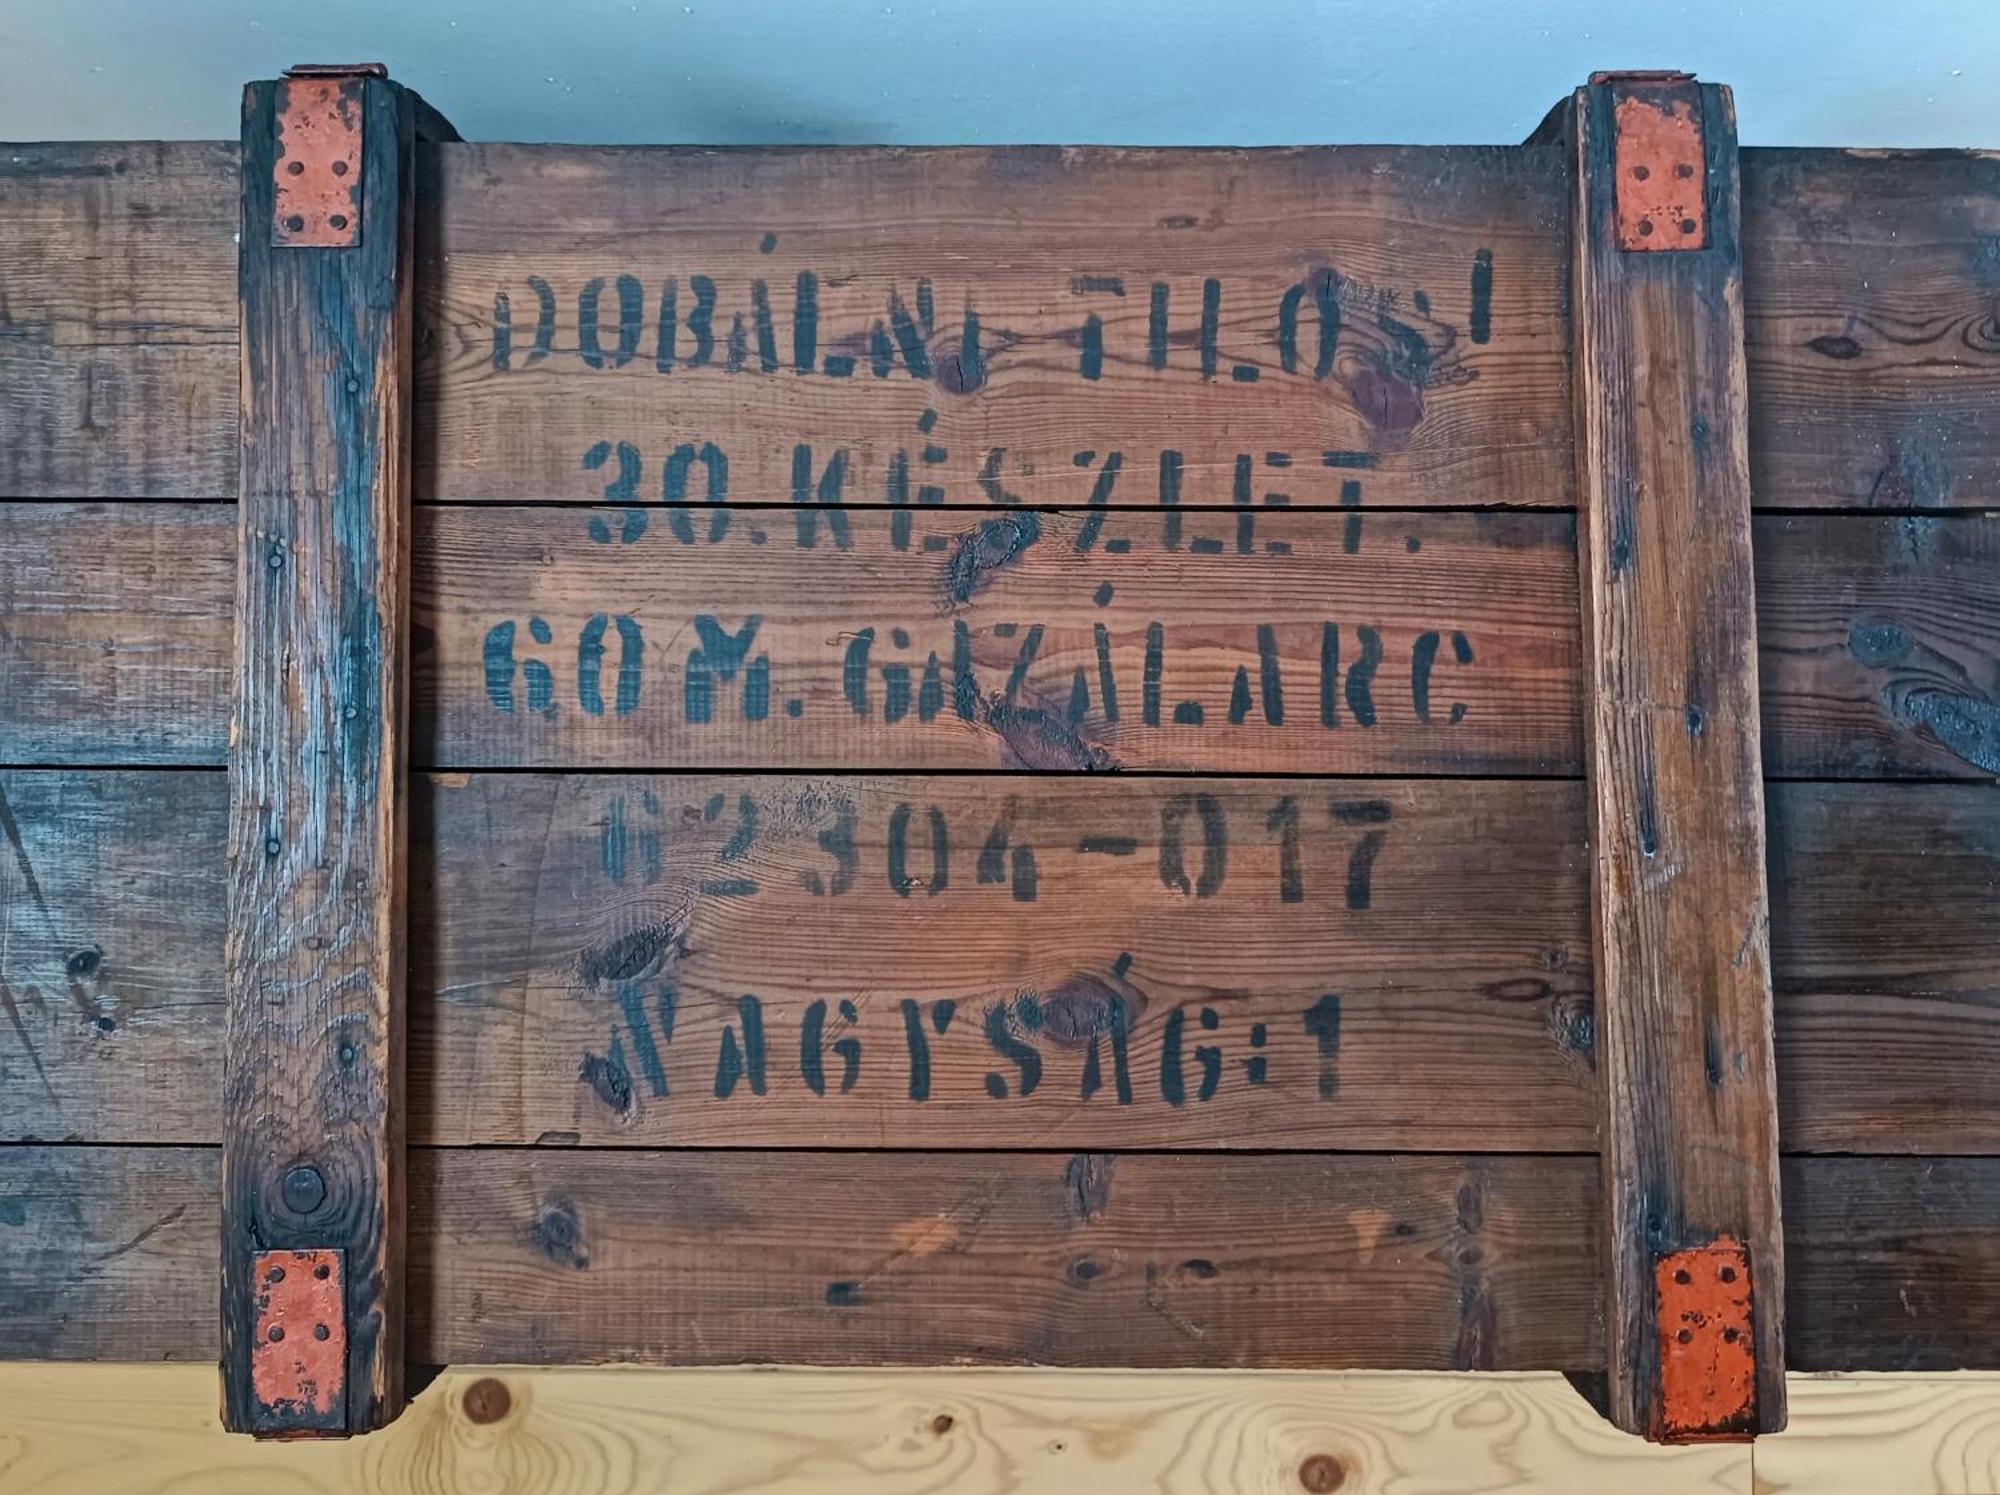 DOBÁLNI TILOS!
30. KÉSZLET.
60 M. GÁZÁLARC
62304-017
NAGYSÁG:1